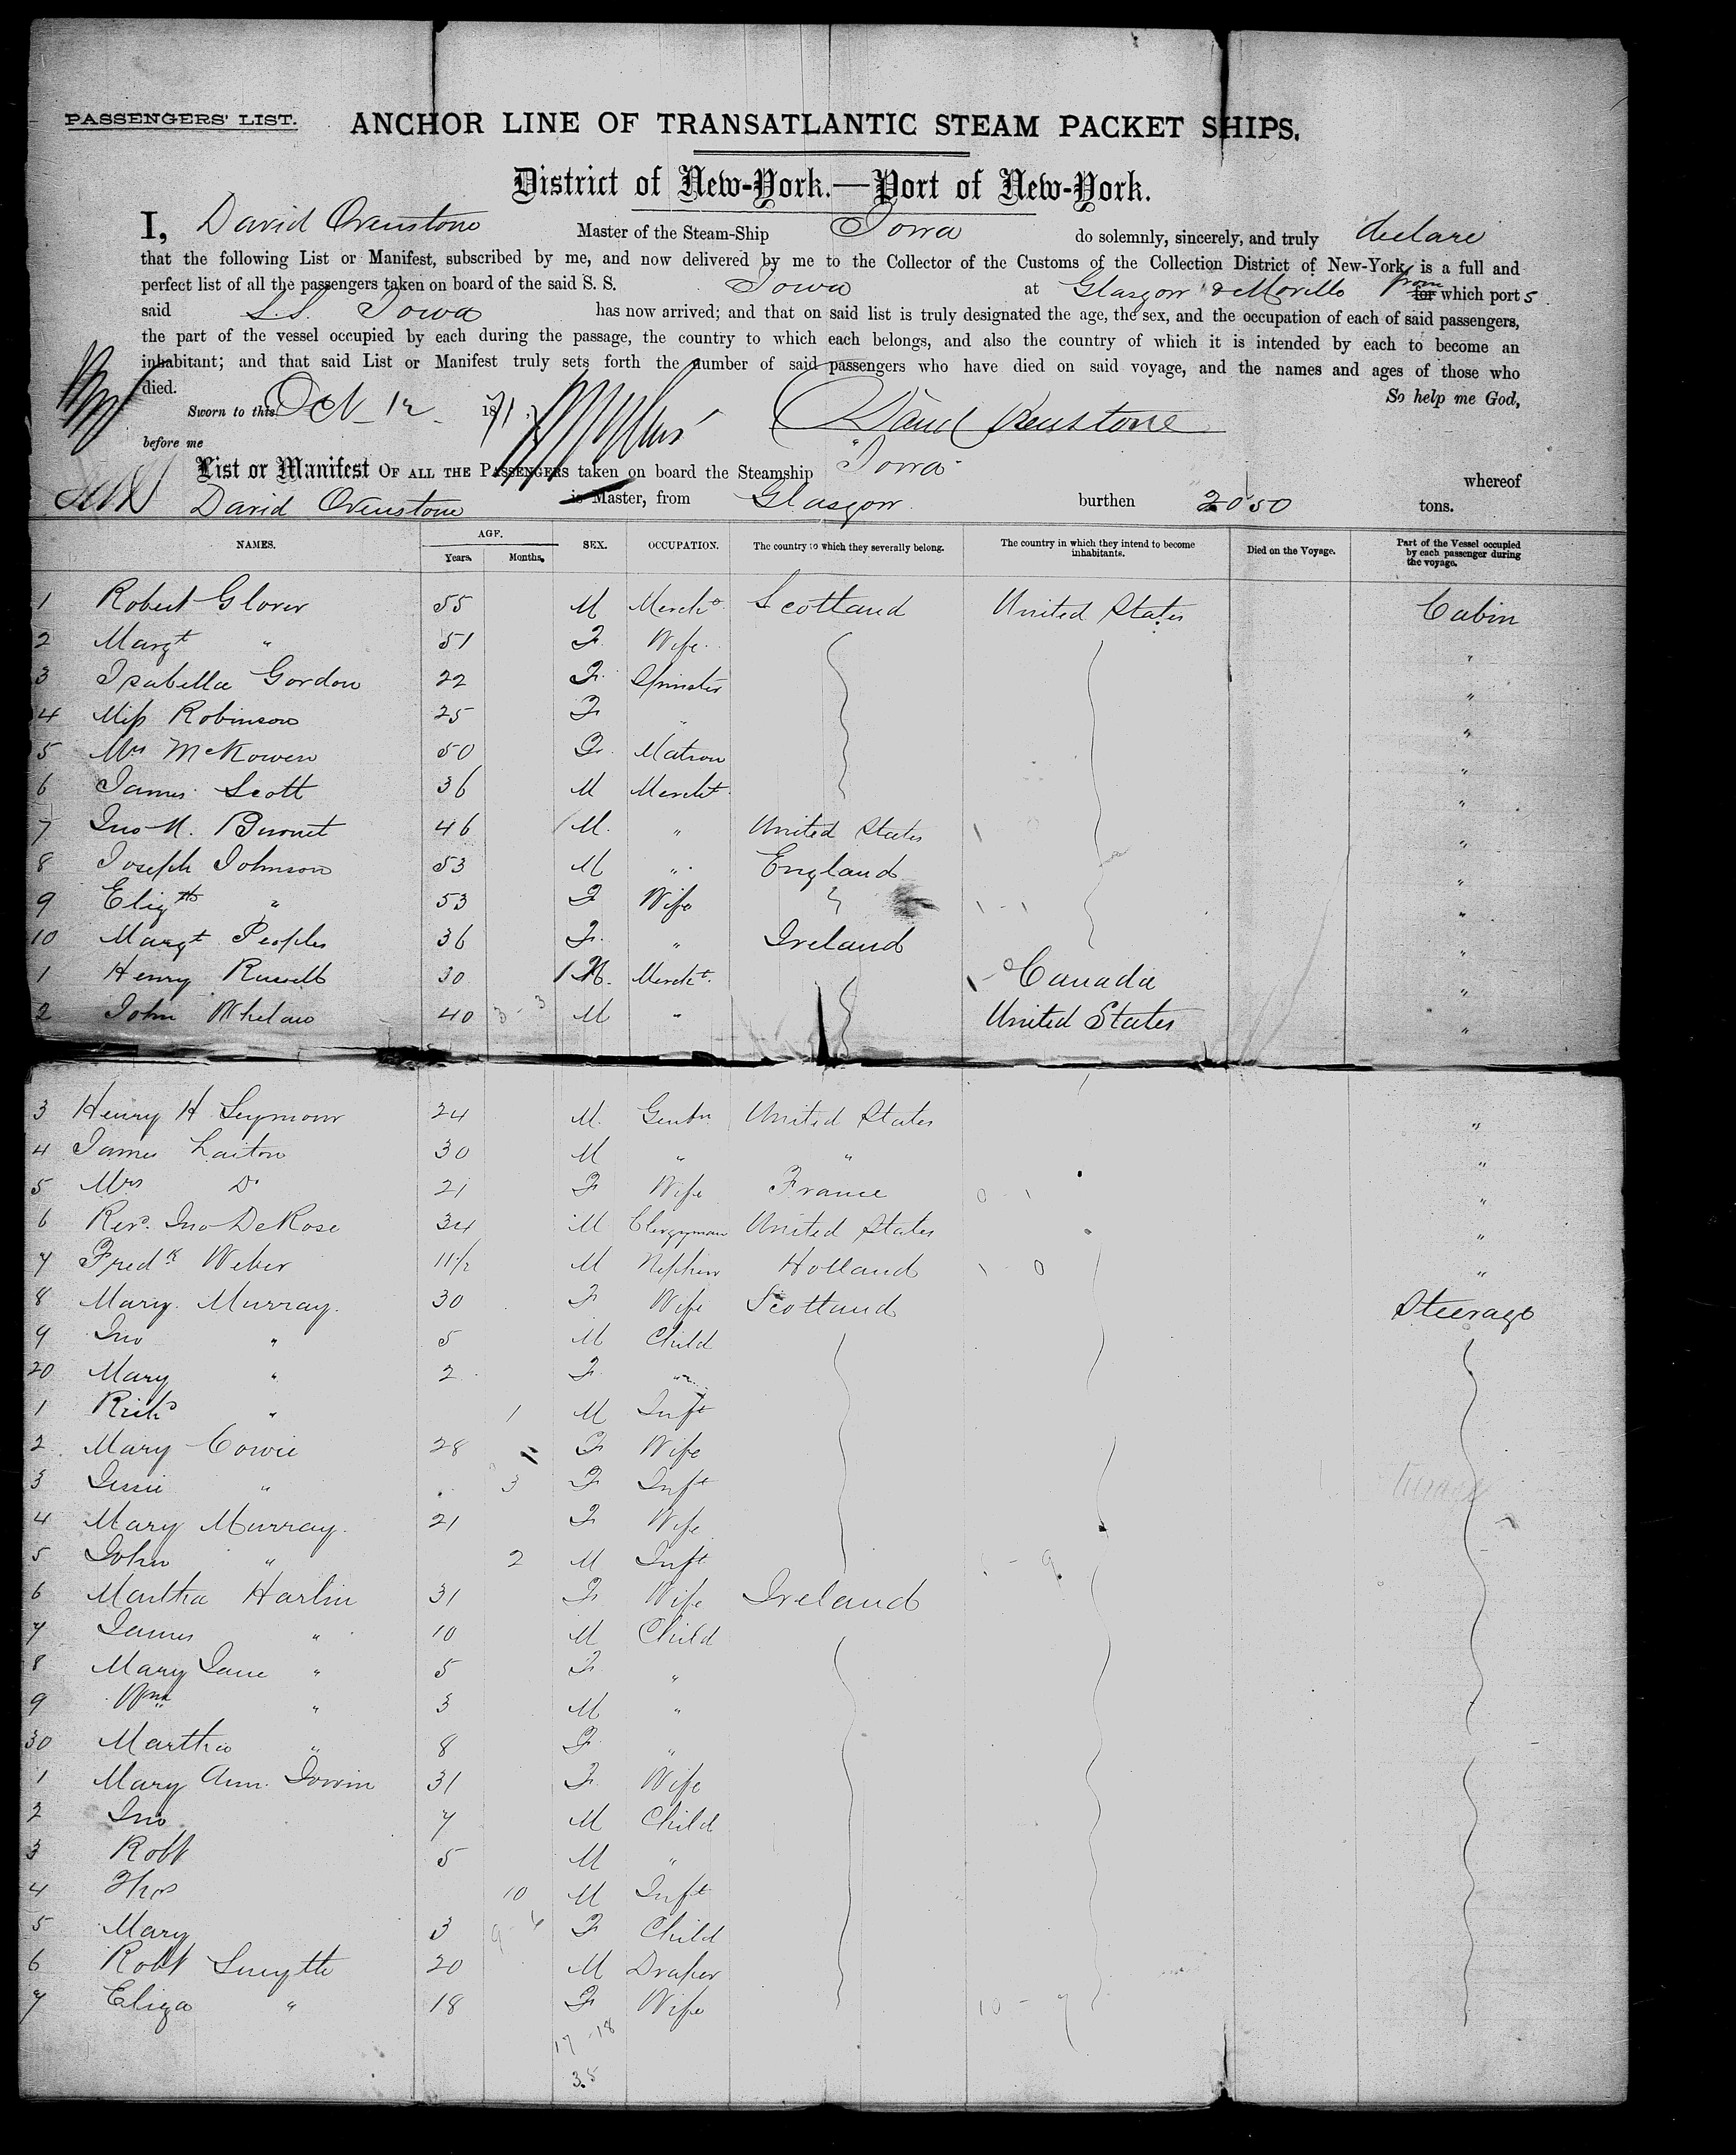 PASSENGERS' LIST.
ANCHOR LINE OF TRANSATLANTIC STEAM PACKET SHIPS.
District of New-York.—Port of New-York.
I, David Ovenstone Master of the Steam-Ship Iowa do solemnly, sincerely, and truly declare
that the following List or Manifest, subscribed by me, and now delivered by me to the Collector of the Customs of the Collection District of New-York, is a full and
perfect list of all the passengers taken on board of the said S. S. Iowa at Glasgow & Moville from for which ports
said S.S. Iowa has now arrived; and that on said list is truly designated the age, the sex, and the occupation of each of said passengers,
the part of the vessel occupied by each during the passage, the country to which each belongs, and also the country of which it is intended by each to become an
inhabitant; and that said List or Manifest truly sets forth the number of said passengers who have died on said voyage, and the names and ages of those who
died. So help me God,
Sworn to this Oct 12 1871, David Ovenstone
before me
List or Manifest OF ALL THE PASSENGERS taken on board the Steamship "Iowa" whereof
David Ovenstone is Master, from Glasgow burthen 2050 tons.
NAMES. AGE. Years. Months. SEX. OCCUPATION. The country to which they severally belong. The country in which they intend to become inhabitants. Died on the Voyage. Part of the Vessel occupied by each passenger during the voyage.
1 Robert Glover 55 M Mercht Scotland United States Cabin
2 Margt " 51 F Wife "
3 Isabella Gordon 22 F Spinster "
4 Miss Robinson 25 F " "
5 Mrs McKowen 50 F Matron "
6 James Scott 36 M Mercht "
7 Jno M. Burnet 46 M " United States "
8 Joseph Johnson 53 M " England "
9 Elizth " 53 F Wife "
10 Margt Peoples 36 F " Ireland "
1 Henry Russell 30 M Mercht Canada "
2 John Whelan 40 M " United States "
3 Henry H Seymour 24 M Gentn United States "
4 James Laiton 30 M " " "
5 Mrs Do 21 F Wife France "
6 Revd Jno DeRose 34 M Clergyman United States "
7 Fredk Weber 11½ M Nephew Holland "
8 Mary Murray 30 F Wife Scotland Steerage
9 Jno " 5 M Child
20 Mary " 2 F "
1 Richd " 1 M Inft
2 Mary Cowie 28 F Wife
3 Jessie " 3 F Inft
4 Mary Murray 21 F Wife
5 John " 2 M Inft
6 Martha Harlin 31 F Wife Ireland
7 James " 10 M Child
8 Mary Jane " 5 F "
9 Wm " 3 M "
30 Martha " 8 F "
1 Mary Ann Irwin 31 F Wife
2 Jno 7 M Child
3 Robt 5 M "
4 Thos 10 M Inft
5 Mary 3 F Child
6 Robt Smyth 20 M Draper
7 Eliza " 18 F Wife
17 - 18
35